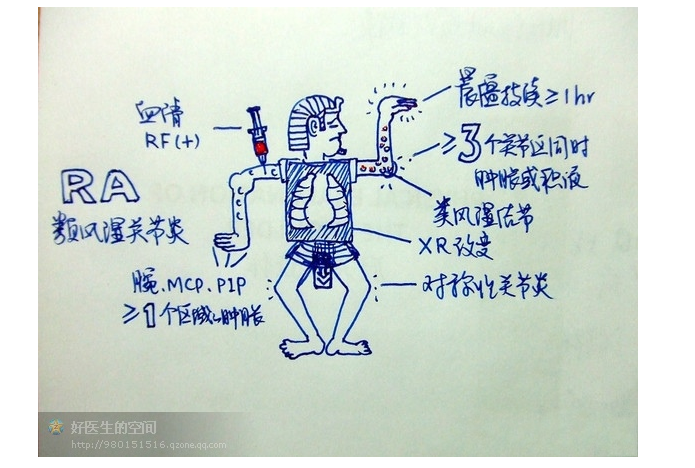 血清
RF(+)
RA
类风湿关节炎
腕.MCP.PIP
≥1个区域肿胀
晨僵持续≥1hr
≥3个关节区同时
肿胀或积液
类风湿结节
XR改变
对称性关节炎
好医生的空间
http://980151516.qzone.qq.com